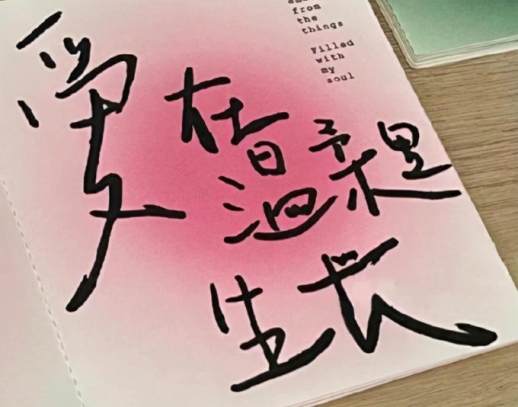 from
the
things
Filled
with
my
soul
爱在
温柔里
生长